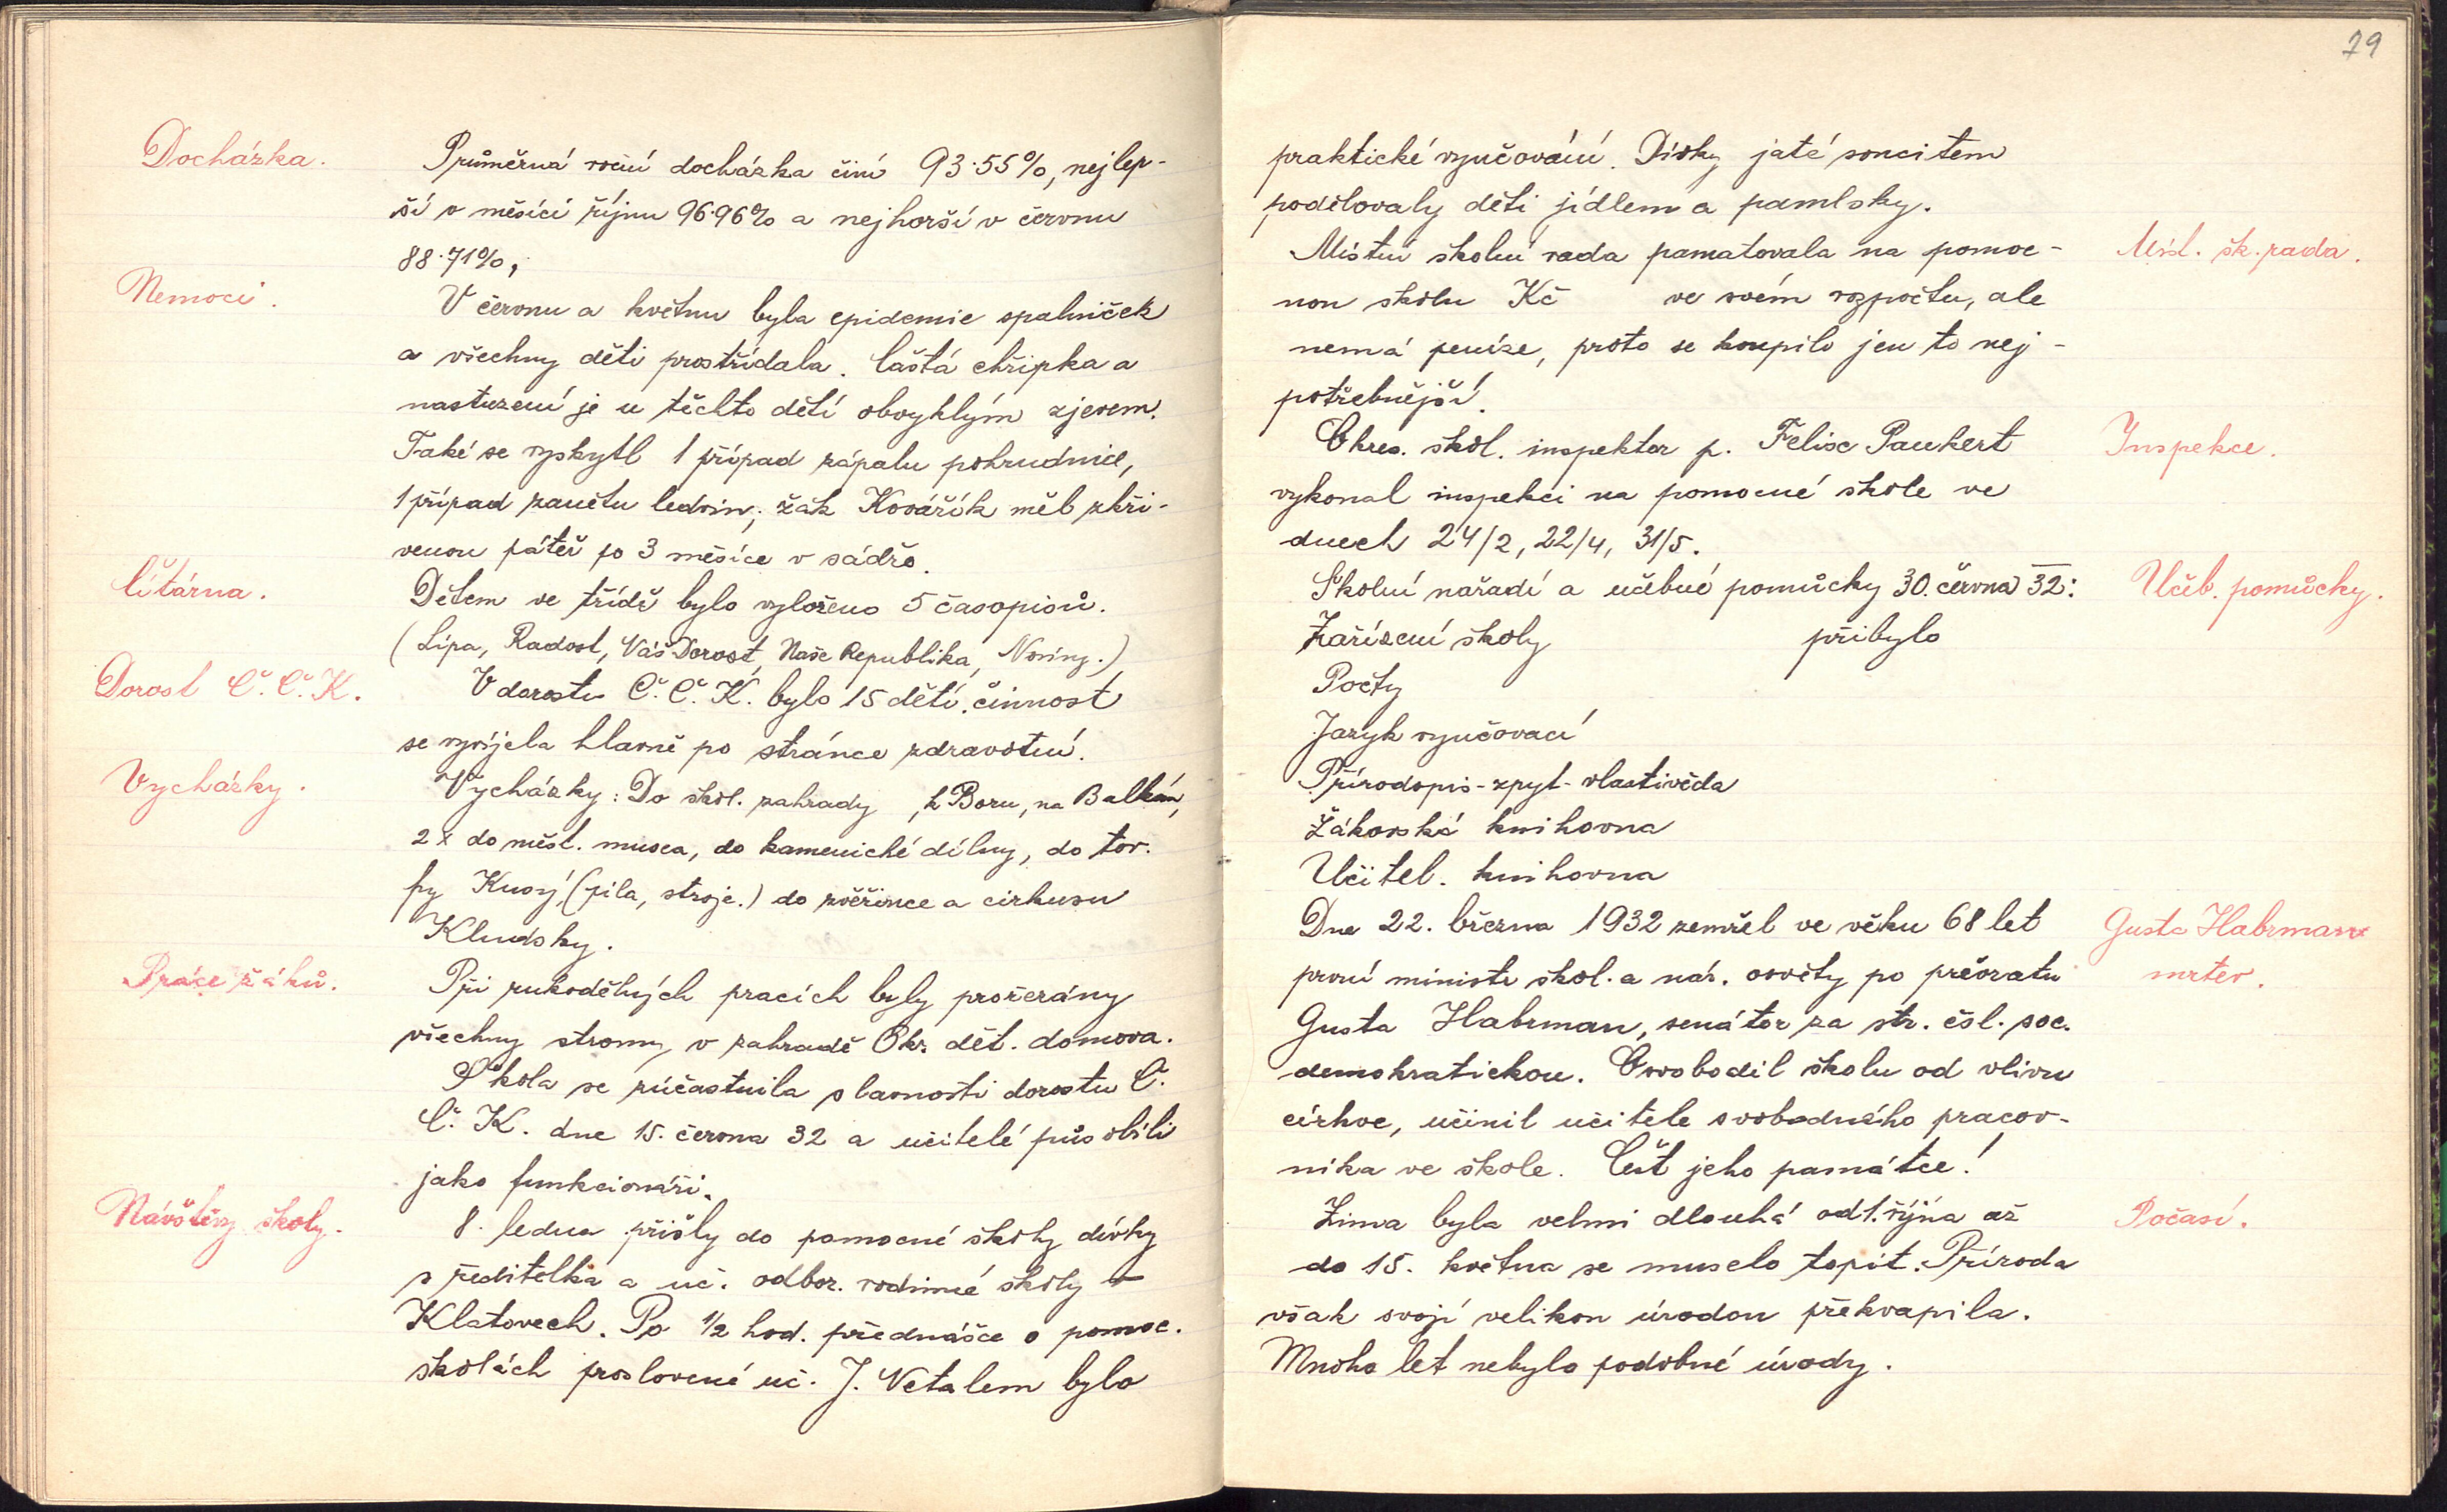 Docházka.
Průměrná roční docházka činí 93·55%, nejlep-
ší v měsíci říjnu 96·96% a nejhorší v červnu
88·71%,
Nemoci.
V červnu a květnu byla epidemie spalniček
a všechny děti prostřídala. Častá chřipka a
nastuzení je u těchto dětí obvyklým zjevem.
Také se vyskytl 1 případ zápalu pohrudnice,
1 případ zanětu ledvin; žák Kovářík měl zkři-
venou páteř po 3 měsíce v sádře.
Čítárna.
Dětem ve třídě bylo vyloženo 5 časopisů.
(Lípa, Radost, Váš Dorost, Naše Republika, Noviny.)
Dorost Č. Č. K.
V dorostu Č. Č. K. bylo 15 dětí, činnost
se vyvíjela hlavně po stránce zdravotní.
Vycházky.
Vycházky: Do škol. zahrady, k Boru, na Balkán,
2x do měst. musea, do kamenické dílny, do tov.
fy Kusý, (pila, stroje.) do zvěřince a cirkusu
Kludsky.
Práce žáků.
Při rukodělných pracích byly prořezány
všechny stromy v zahradě Okr. dět. domova.
Škola se zúčastnila slavnosti dorostu Č.
Č. K. dne 15. června 32 a učitelé působili
jako funkcionáři.
Návštěvy školy.
8. ledna přišly do pomocné školy dívky
s ředitelka a uč. odbor. rodinné školy v
Klatovech. Po 1/2 hod. přednášce o pomoc.
školách proslovené uč. J. Netalem bylo
79
praktické vyučování. Dívky jaté soucitem
podělovaly děti jídlem a pamlsky.
Míst. šk. rada.
Místní školní rada pamatovala na pomoc-
nou školu Kč ve svém rozpočtu, ale
nemá peníze, proto se koupilo jen to nej-
potřebnější.
Inspekce.
Okres. škol. inspektor p. Felix Paukert
vykonal inspekci na pomocné škole ve
dnech 24/2, 22/4, 31/5.
Učeb. pomůcky.
Školní nařadí a učebné pomůcky 30. června 32:
Zařízení školy přibylo
Počty
Jazyk vyučovací
Přírodopis-zpyt-vlastivěda
Žákovská knihovna
Učitel. knihovna
Gusta Habrman
mrtev.
Dne 22. března 1932 zemřel ve věku 68 let
první ministr škol. a nár. osvěty po převratu
Gusta Habrman, senátor za str. čsl. soc.
demokratickou. Osvobodil školu od vlivu
církve, učinil učitele svobodného pracov-
níka ve škole. Čest jeho památce!
Počasí.
Zima byla velmi dlouhá od 1. října až
do 15. května se muselo topit. Příroda
však svojí velikou úrodou překvapila.
Mnoho let nebylo podobné úrody.